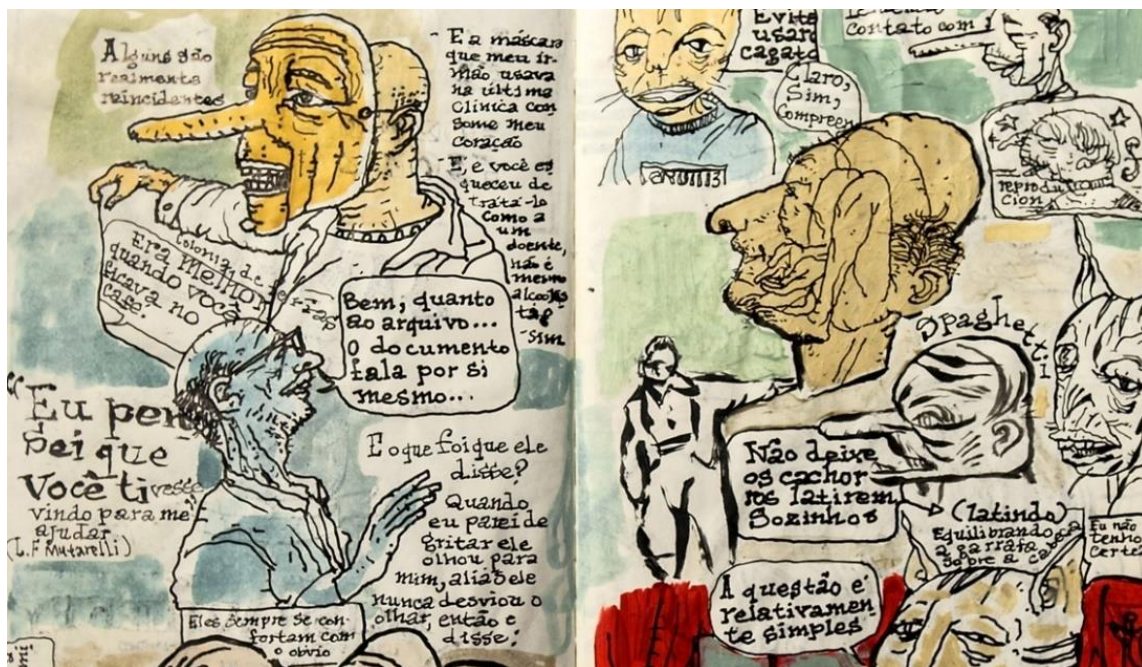 Alguns são
realmente
reincidentes
- E a máscara
que meu ir-
mão usava
na última
Clinica con
some meu
coração
- E, e você es
queceu de
trata-lo
Como a
um
doente,
não é
mesmo
alcoólis
ta?
- Sim
Colonia de ferias
Era melhor
quando você
ficava no
café.
Bem, quanto
ao arquivo...
O documento
fala por si
mesmo...
"Eu pen
Sei que
Você tivesse
vindo para me"
ajudar
(L.F Mutarelli)
E o que foi que ele
disse?
Quando
eu parei de
gritar ele
olhou para
mim, aliás ele
nunca desviou o
olhar, então e
disse:
Eles sempre se con-
fortam com
o obvio
Evite
usar
cagato
Claro,
Sim,
Compreen
contato com
reprodu
cion
Spaghetti
Não deixe
os cachor
ros latirem
Sozinhos
(latindo)
Equilibrando
a garrafa
sobre a cabeça
Eu não
tenho
certe
A questão é
relativamen
te simples